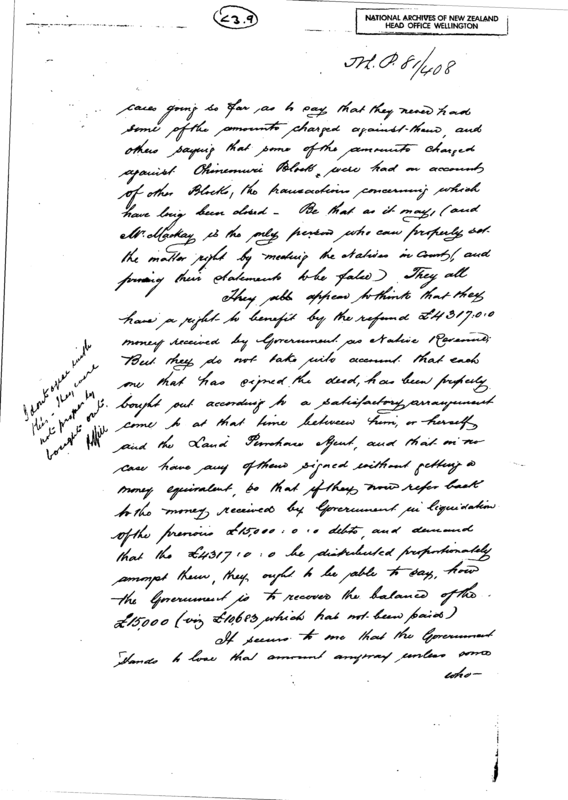 23.9
NATIONAL ARCHIVES OF NEW ZEALAND
HEAD OFFICE WELLINGTON
81/408
cases going so far as to say that they never had
some of the amounts charged against them, and
others saying that some of the amounts charged
against Ohinemuri Block, were had on account
of other Blocks, the transactions concerning which
have long been closed - Be that as it may, (and
Mr. Mackay is the only person who can properly set
the matter right by meeting the Natives in Court, and
proving their statements to be false) They all
They all appear to think that they
have a right to benefit by the refund £4317.0.0
money received by Government as Native Revenue.
But they do not take into account that each
one that has signed the deed, has been properly
bought out according to a satisfactory arrangement
come to at that time between him, or herself
and the Land Purchase Agent, and that in no
case have any of them signed without getting a
money equivalent, so that if they now refer back
to the money received by Government in liquidation
of the previous £15,000:0:0 debts, and demand
that the £4317:0:0 be distributed proportionately
amongst them, they ought to be able to say, how
the Government is to recover the balance of the
£15,000 (viz £10,683 which has not been paid)
It seems to me that the Government
stands to lose that amount anyway unless some
who-
I dont agree with
this - They were
not properly
bought out.